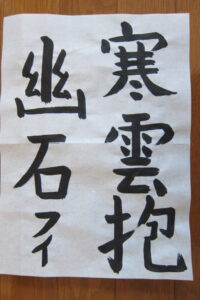 寒雲抱
幽石フイ